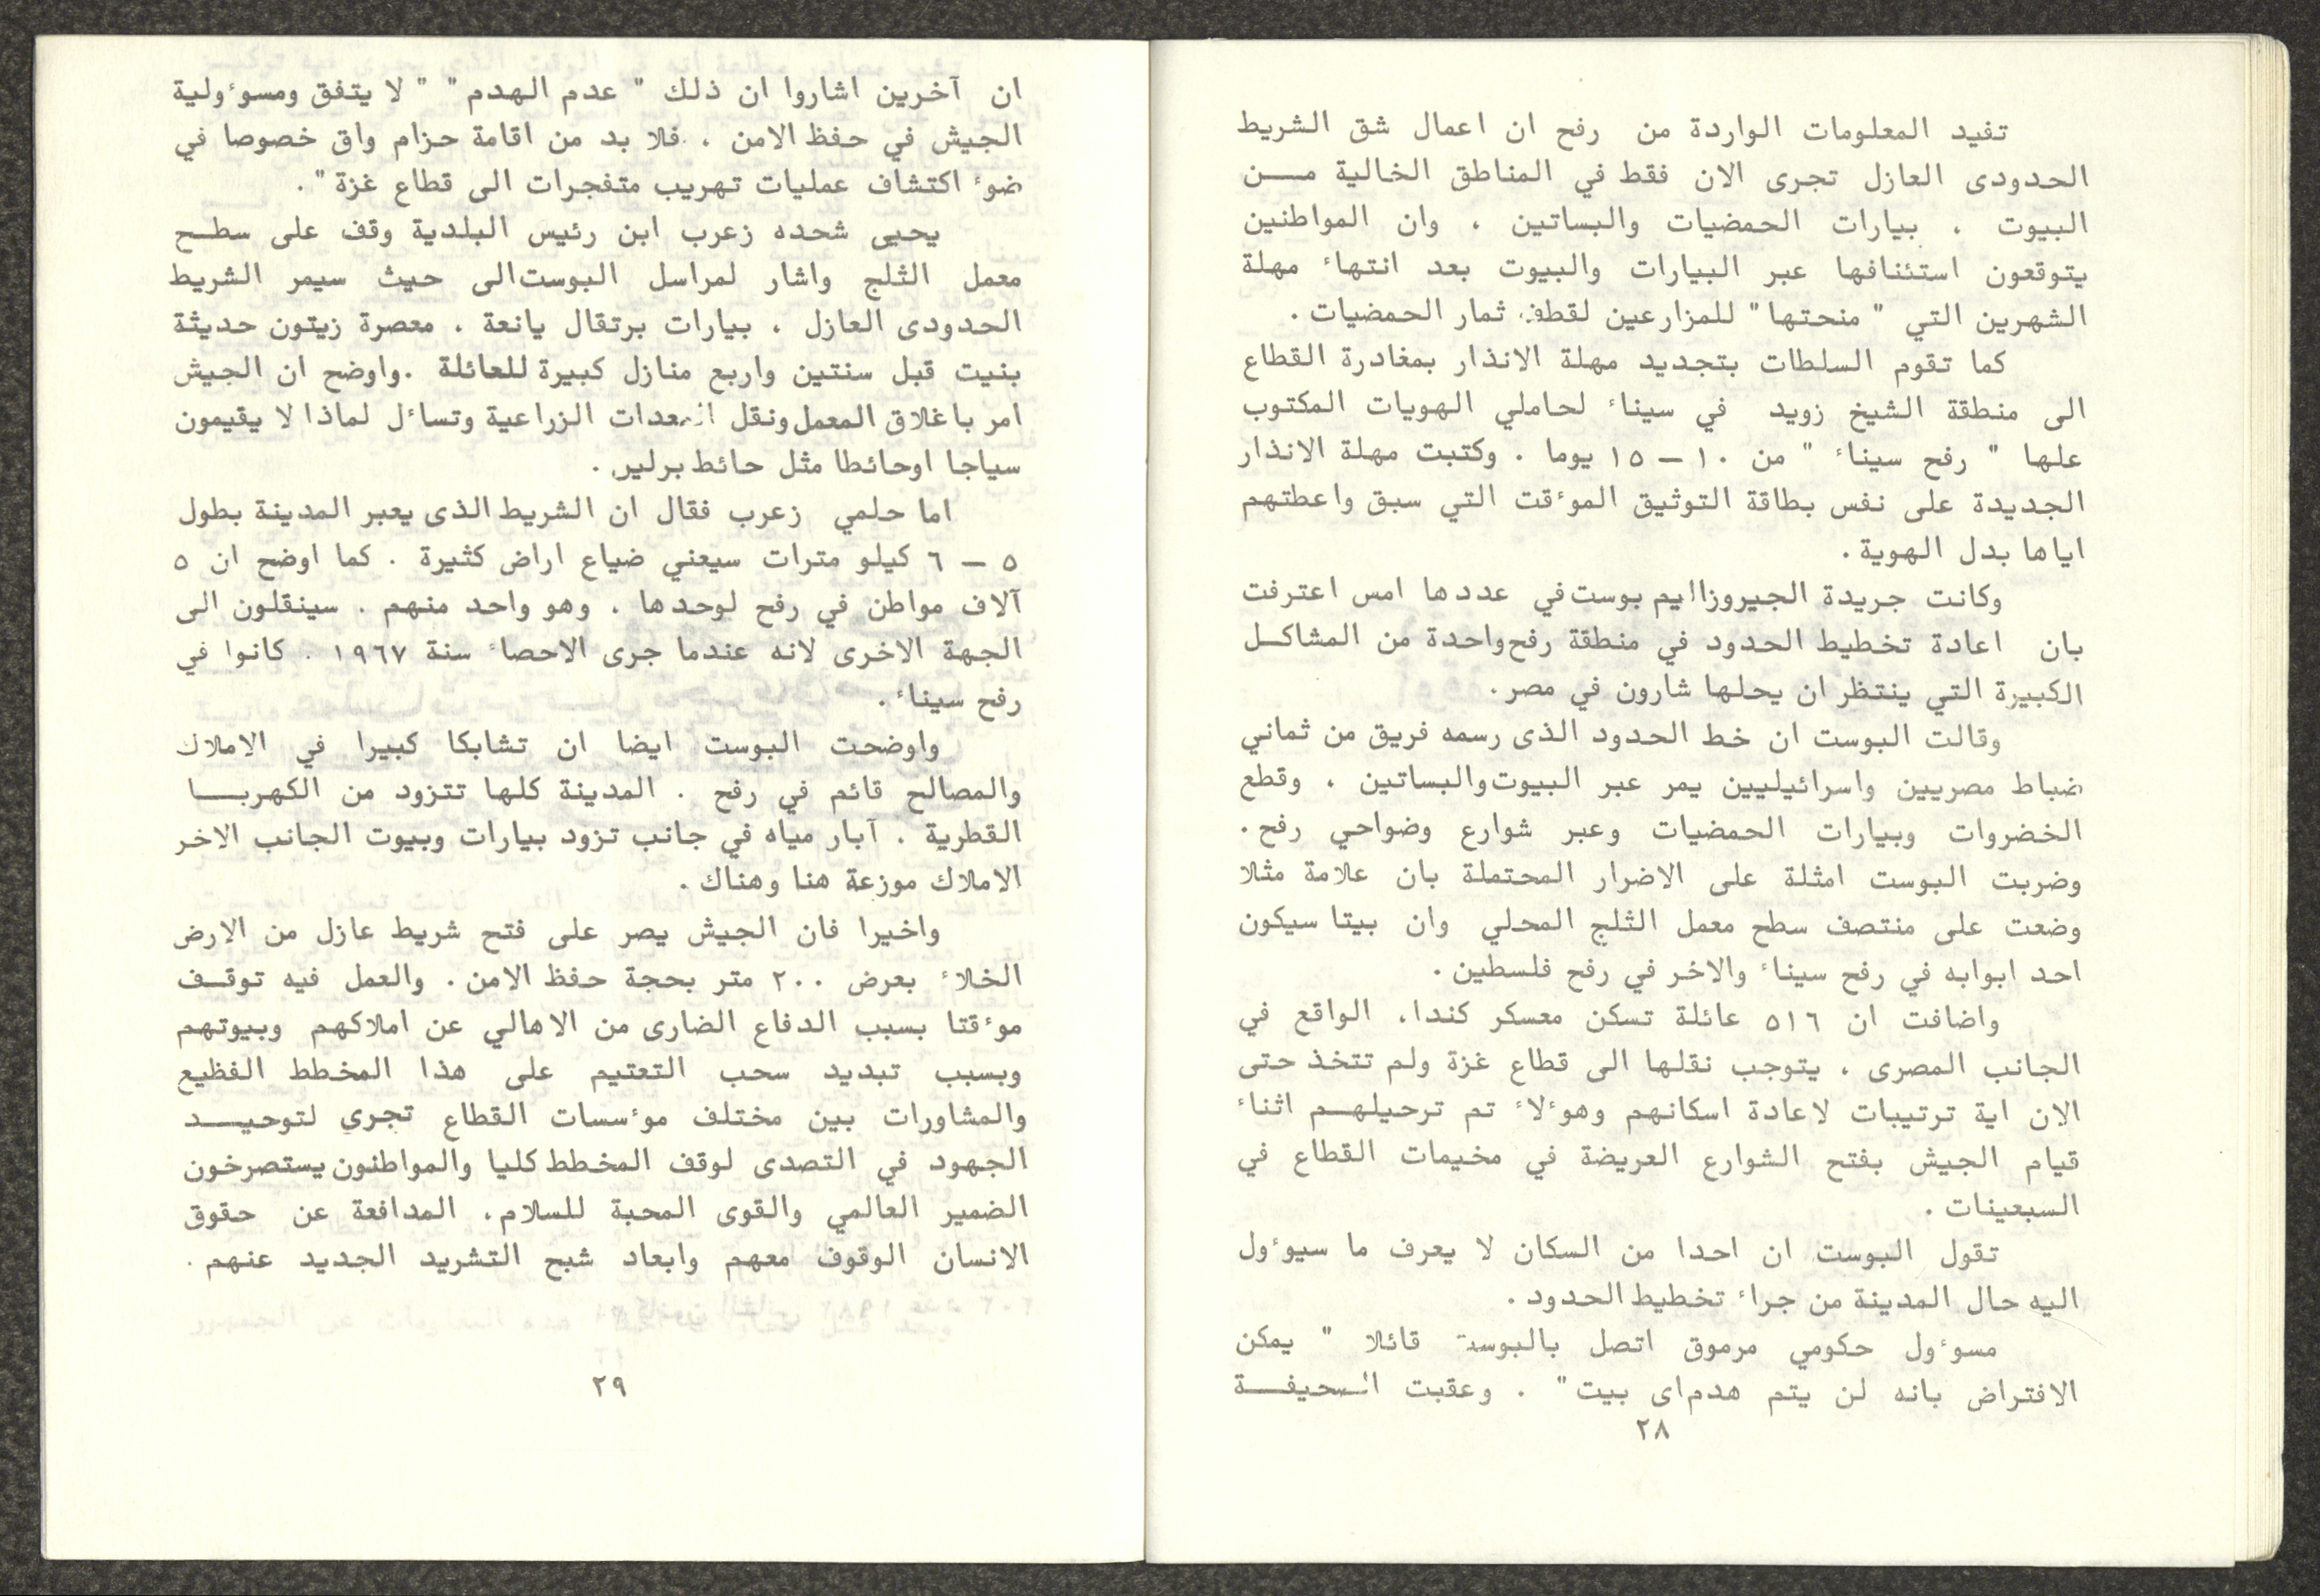 تفيد المعلومات الواردة من رفح ان اعمال شق الشريط
الحدودى العازل تجرى الان فقط في المناطق الخالية مـــن
البيوت ، بيارات الحمضيات والبساتين ، وان المواطنين
يتوقعون استئنافها عبر البيارات والبيوت بعد انتهاء مهلة
الشهرين التي " منحتها" للمزارعين لقطف ثمار الحمضيات .
كما تقوم السلطات بتجديد مهلة الانذار بمغادرة القطاع
الى منطقة الشيخ زويد في سيناء لحاملي الهويات المكتوب
علها " رفح سيناء " من ١٠ – ١٥ يوما . وكتبت مهلة الانذار
الجديدة على نفس بطاقة التوثيق الموءقت التي سبق واعطتهم
اياها بدل الهوية .
وكانت جريدة الجيروزاليم بوست في عددها امس اعترفت
بان اعادة تخطيط الحدود في منطقة رفح واحدة من المشاكــل
الكبيرة التي ينتظر ان يحلها شارون في مصر .
وقالت البوست ان خط الحدود الذى رسمه فريق من ثماني
ضباط مصريين واسرائيليين يمر عبر البيوت والبساتين ، وقطع
الخضروات وبيارات الحمضيات وعبر شوارع وضواحي رفح .
وضربت البوست امثلة على الاضرار المحتملة بان علامة مثلا
وضعت على منتصف سطح معمل الثلج المحلي وان بيتا سيكون
احد ابوابه في رفح سيناء والاخر في رفح فلسطين .
واضافت ان ٥١٦ عائلة تسكن معسكر كندا، الواقع في
الجانب المصرى ، يتوجب نقلها الى قطاع غزة ولم تتخذ حتى
الان اية ترتيبات لاعادة اسكانهم وهوءلاء تم ترحيلهــم اثناء
قيام الجيش بفتح الشوارع العريضة في مخيمات القطاع في
السبعينات .
تقول البوست ان احدا من السكان لا يعرف ما سيوءول
اليه حال المدينة من جراء تخطيط الحدود .
مسوءول حكومي مرموق اتصل بالبوست قائلا " يمكن
الافتراض بانه لن يتم هدم اى بيت" . وعقبت الصحيفــــة
٢٨
ان آخرين اشاروا ان ذلك " عدم الهدم " " لا يتفق ومسوءولية
الجيش في حفظ الامن ، فلا بد من اقامة حزام واق خصوصا في
ضوء اكتشاف عمليات تهريب متفجرات الى قطاع غزة" .
يحيى شحده زعرب ابن رئيس البلدية وقف على سطــح
معمل الثلج واشار لمراسل البوست الى حيث سيمر الشريط
الحدودى العازل ، بيارات برتقال يانعة ، معصرة زيتون حديثة
بنيت قبل سنتين واربع منازل كبيرة للعائلة .واوضح ان الجيش
امر باغلاق المعمل ونقل المعدات الزراعية وتساءل لماذا لا يقيمون
سياجا اوحائطا مثل حائط برلين .
اما حلمي زعرب فقال ان الشريط الذى يعبر المدينة بطول
٥ – ٦ كيلو مترات سيعني ضياع اراض كثيرة . كما اوضح ان ٥
آلاف مواطن في رفح لوحدها ، وهو واحد منهم . سينقلون الى
الجهة الاخرى لانه عندما جرى الاحصاء سنة ١٩٦٧ . كانوا في
رفح سيناء .
واوضحت البوست ايضا ان تشابكا كبيرا في الاملاك
والمصالح قائم في رفح . المدينة كلها تتزود من الكهربـــا
القطرية . آبار مياه في جانب تزود بيارات وبيوت الجانب الاخر
الاملاك موزعة هنا وهناك .
واخيرا فان الجيش يصر على فتح شريط عازل من الارض
الخلاء بعرض ٢٠٠ متر بحجة حفظ الامن . والعمل فيه توقــف
موءقتا بسبب الدفاع الضارى من الاهالي عن املاكهم وبيوتهم
وبسبب تبديد سحب التعتيم على هذا المخطط الفظيع
والمشاورات بين مختلف موءسسات القطاع تجري لتوحيـــد
الجهود في التصدى لوقف المخطط كليا والمواطنون يستصرخون
الضمير العالمي والقوى المحبة للسلام، المدافعة عن حقوق
الانسان الوقوف معهم وابعاد شبح التشريد الجديد عنهم .
٢٩